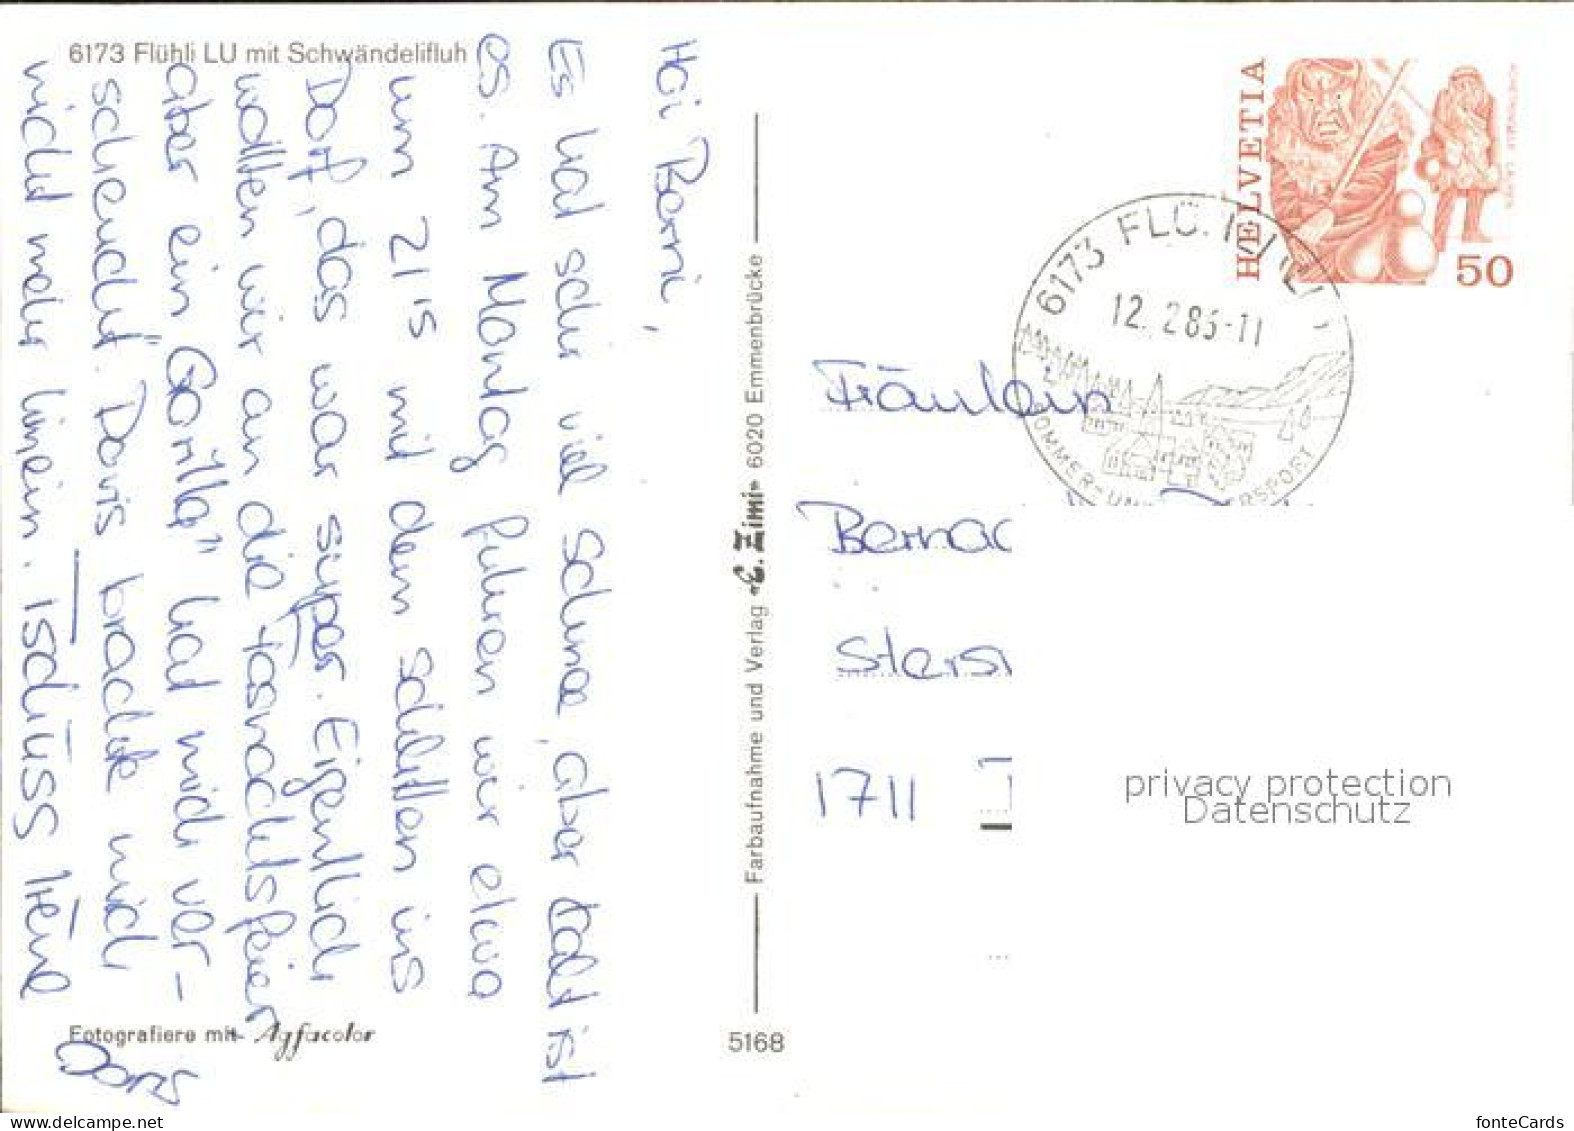 6173 Flühli LU mit Schwändelifluh
Hoi Berni,
Es hat sehr viel Schnee, aber kalt ist
es. Am Montag fuhren wir etwa
um 21 15 mit dem schlitten ins
Dorf, das war super. Eigentlich
wollten wir an die Fasnachtsfeier
aber ein "Gorilla" hat mich ver-
scheucht. Doris brachte mich
nicht mehr hinein. Tschüss Irène
Doris
Fotografiere mit Agfacolor
Farbaufnahme und Verlag «E. Zimi» 6020 Emmenbrücke
5168
HELVETIA
50
6173 FLÜHLI LU
12.2.86-11
SOMMER- UND WINTERSPORT
Fräulein
Bernad
Stersi
1711
privacy protection
Datenschutz
fonteCards